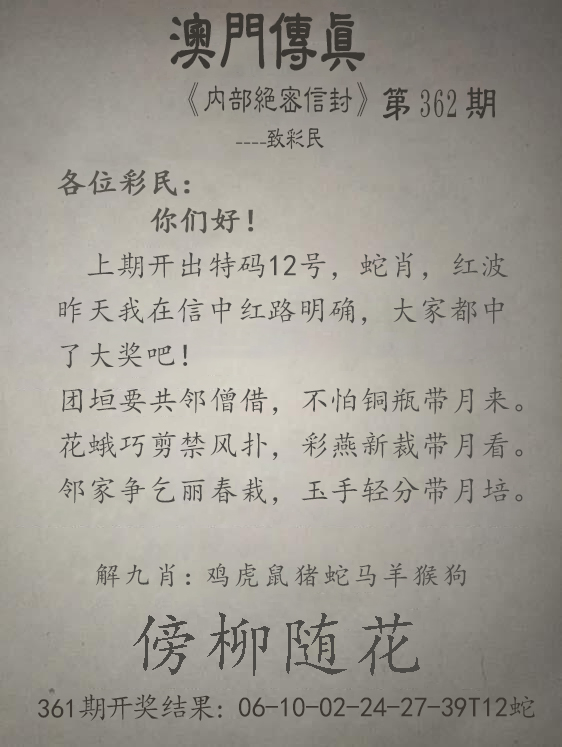 澳門傳眞
《内部絕密信封》第362期
----致彩民
各位彩民：
你们好！
上期开出特码12号，蛇肖，红波
昨天我在信中红路明确，大家都中
了大奖吧！
团垣要共邻僧借，不怕铜瓶带月来。
花蛾巧剪禁风扑，彩燕新裁带月看。
邻家争乞丽春栽，玉手轻分带月培。
解九肖：鸡虎鼠猪蛇马羊猴狗
傍柳随花
361期开奖结果：06-10-02-24-27-39T12蛇